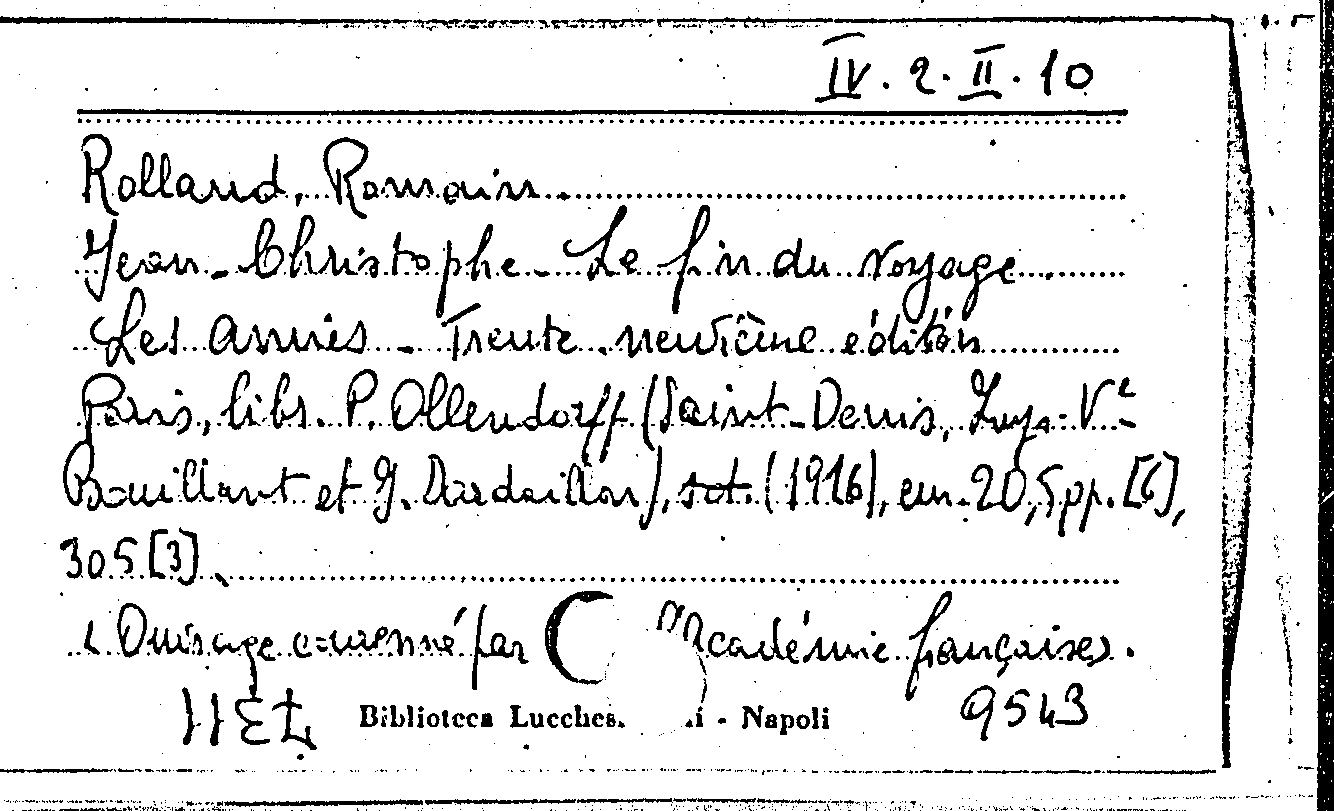 IV. 2. II. 10
Rolland, Romain.
Jean-Christophe - Le fin du voyage
Les amies - Trente neuvième édition
Paris, libr. P. Ollendorff (Saint-Denis, Imp. Vᵉ
Bouillant et J. Dardaillon), s.d. (1916), cm. 20,5 pp. [6],
305 [3].
Ouvrage couronné par l'Académie française.
Biblioteca Lucches. i - Napoli
9543